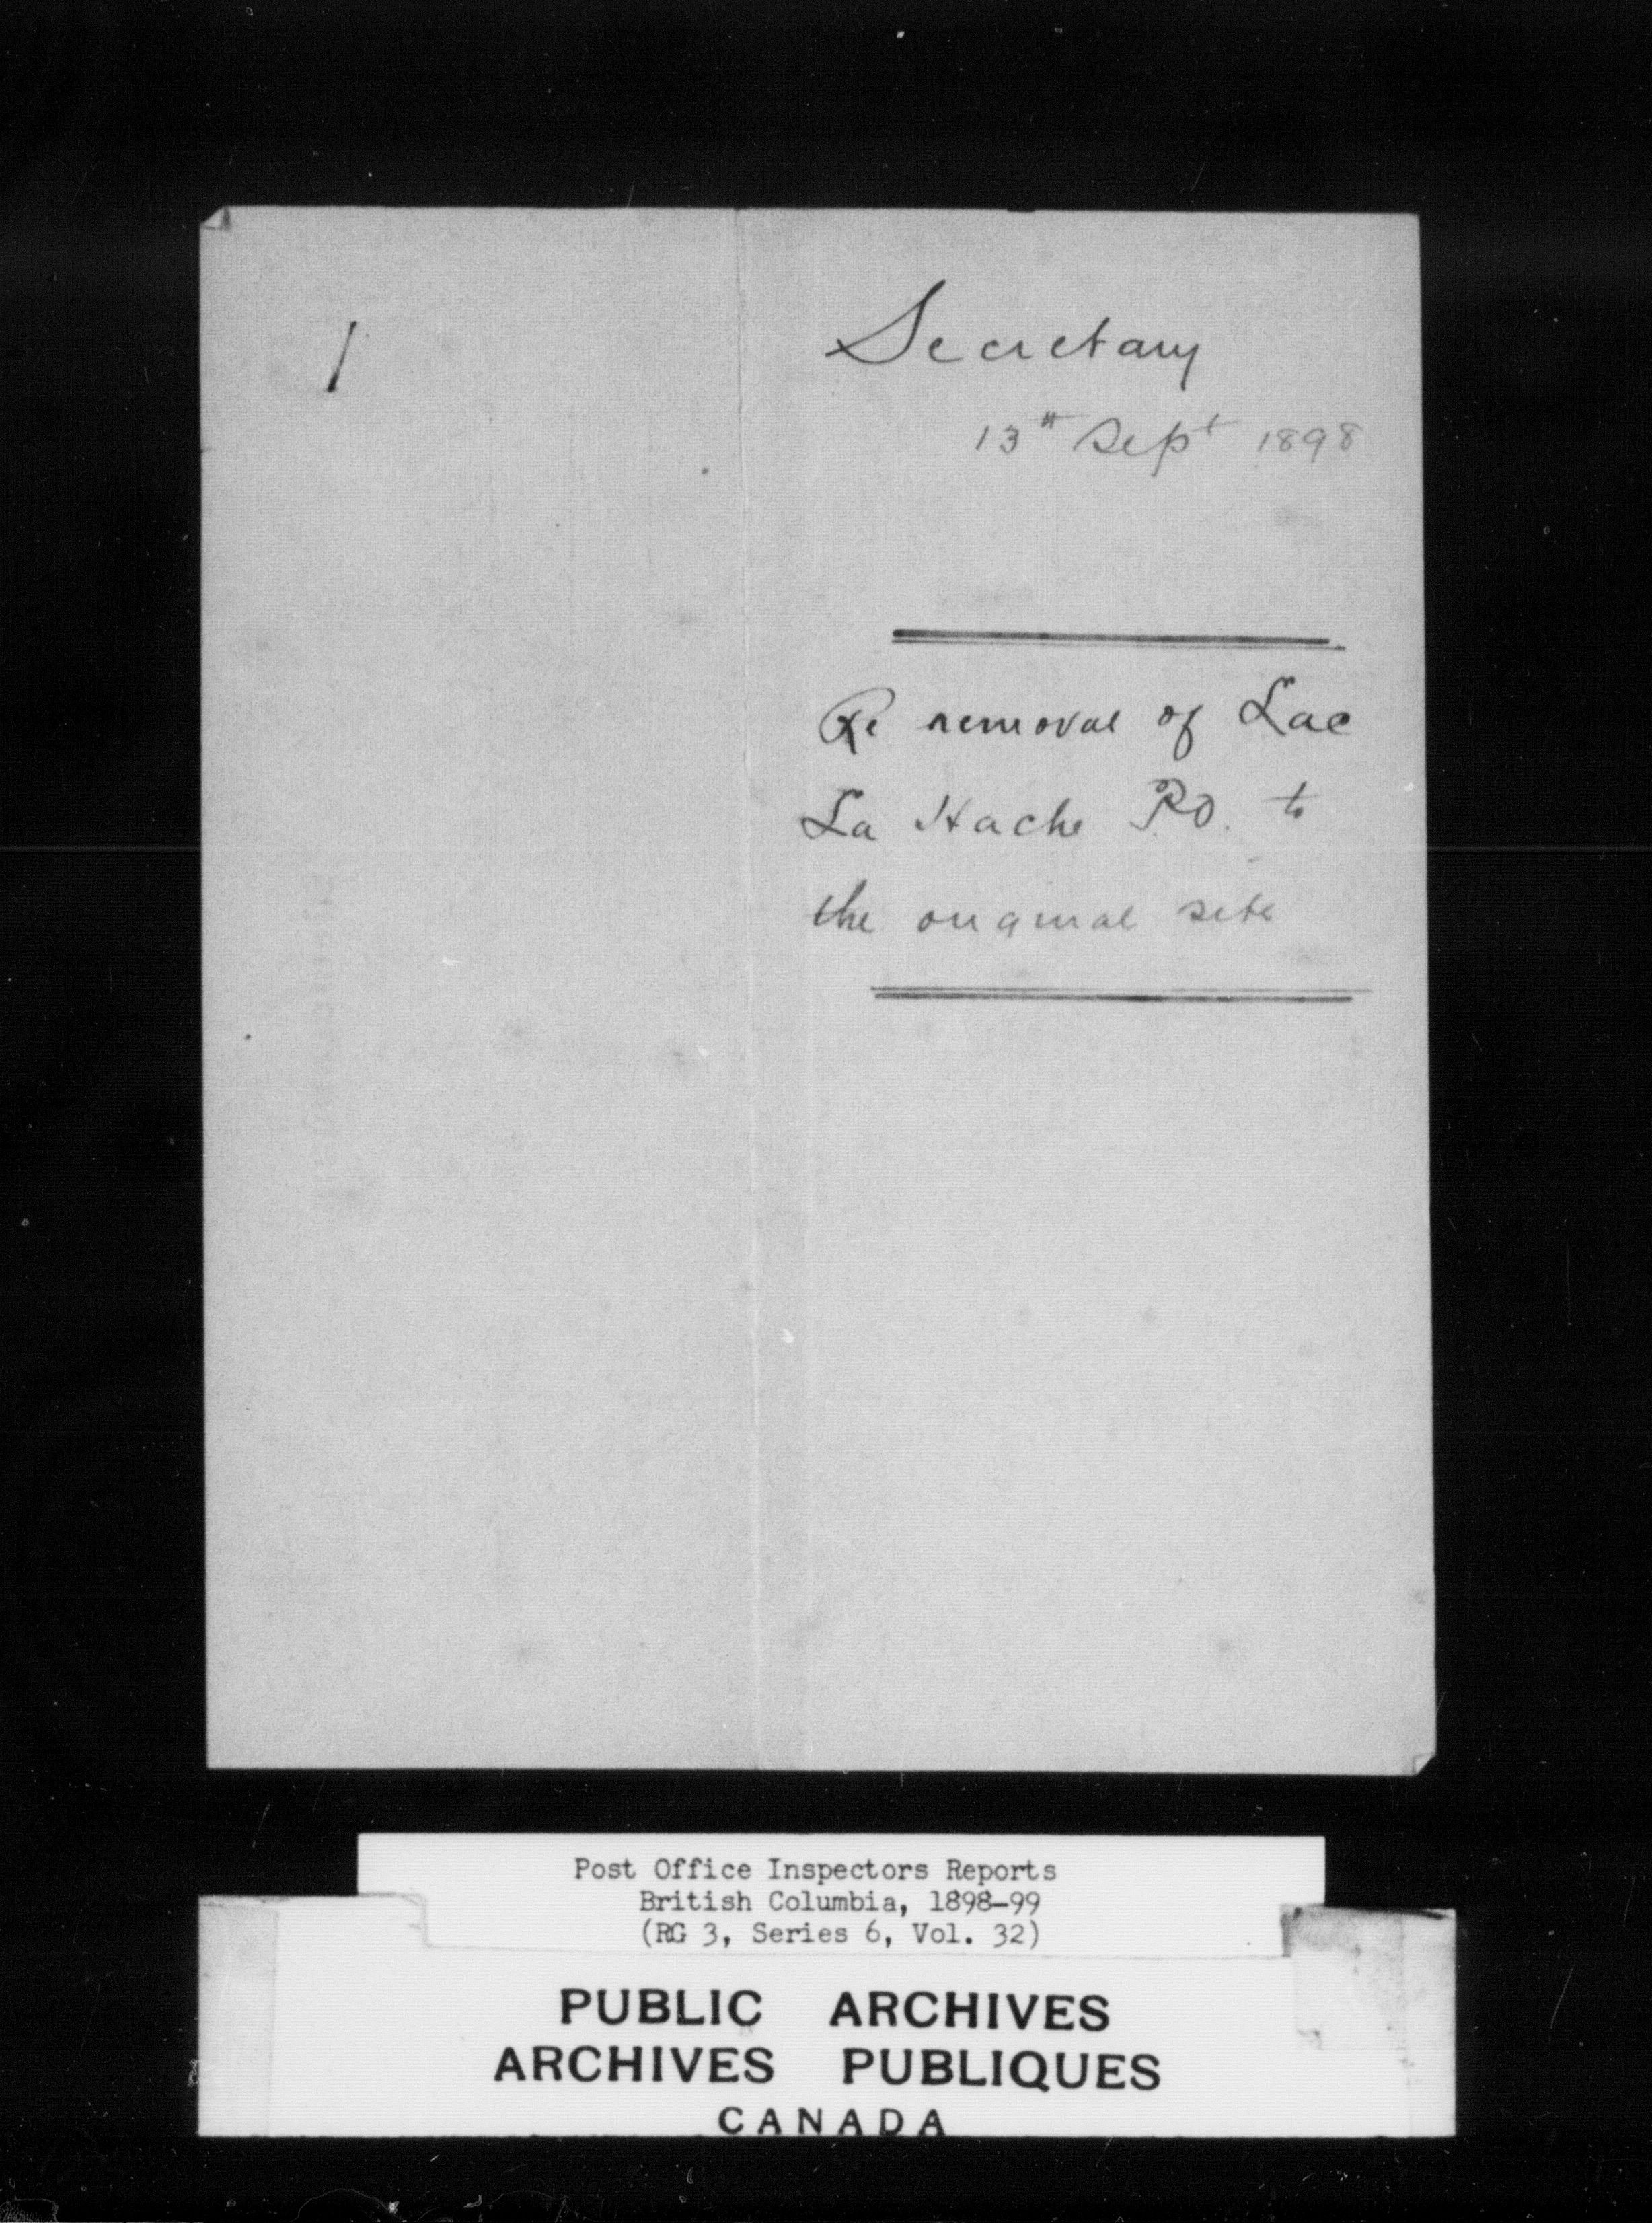 1
Secretary
13th Sept 1898
Re removal of Lac
La Hache P.O. to
the original site
Post Office Inspectors Reports
British Columbia, 1898-99
(RG 3, Series 6, Vol. 32)
PUBLIC ARCHIVES
ARCHIVES PUBLIQUES
CANADA